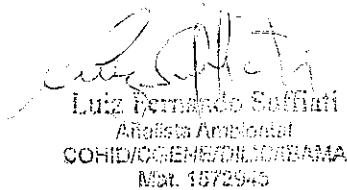 Luiz Fernando Suffiati
Analista Ambiental
COHID/CGENE/DILIC/IBAMA
Mat. 1572945